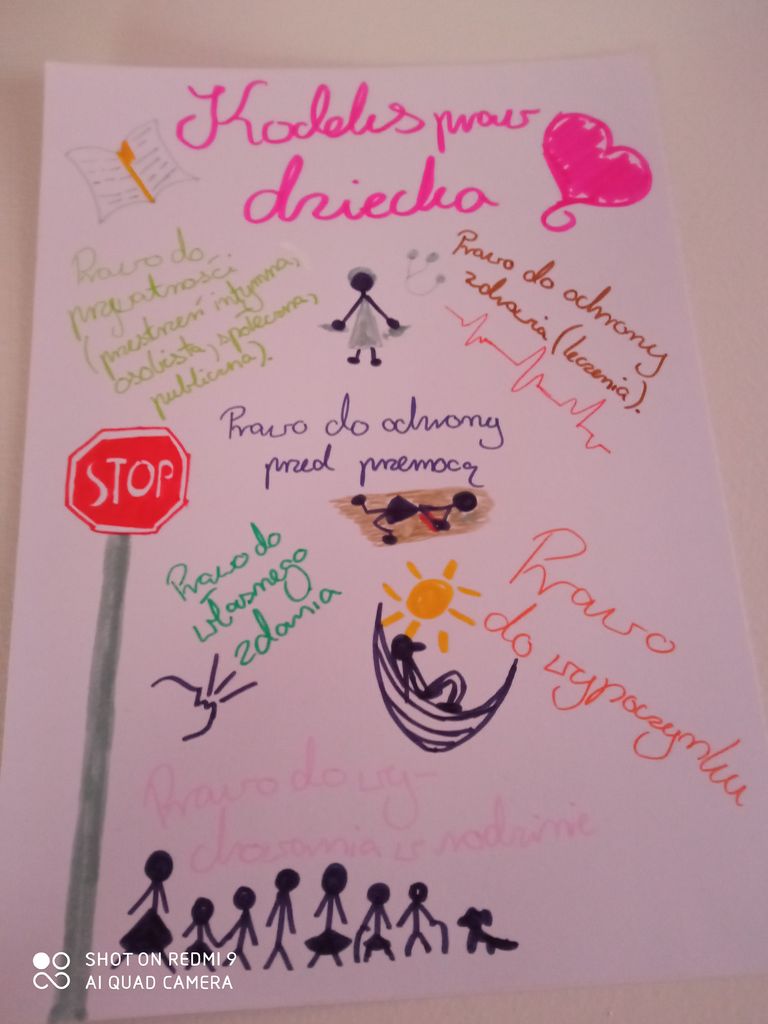 Kodeks praw
dziecka
Prawo do
prywatności
(przestrzeń intymna,
osobista, społeczna,
publiczna).
Prawo do ochrony
zdrowia (leczenia).
Prawo do ochrony
przed przemocą
STOP
Prawo do
własnego
zdania
Prawo
do wypoczynku
Prawo do wy-
chowania w rodzinie
SHOT ON REDMI 9
AI QUAD CAMERA